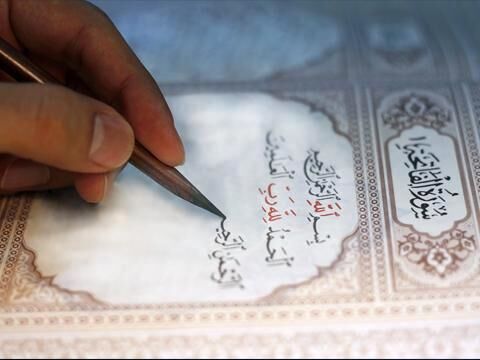 سُورَةُ الْفَاتِحَةِ
بِسْمِ اللَّهِ الرَّحْمٰنِ الرَّحِيمِ
الْحَمْدُ لِلَّهِ رَبِّ الْعٰلَمِينَ
الرَّحْمٰنِ الرَّحِيمِ